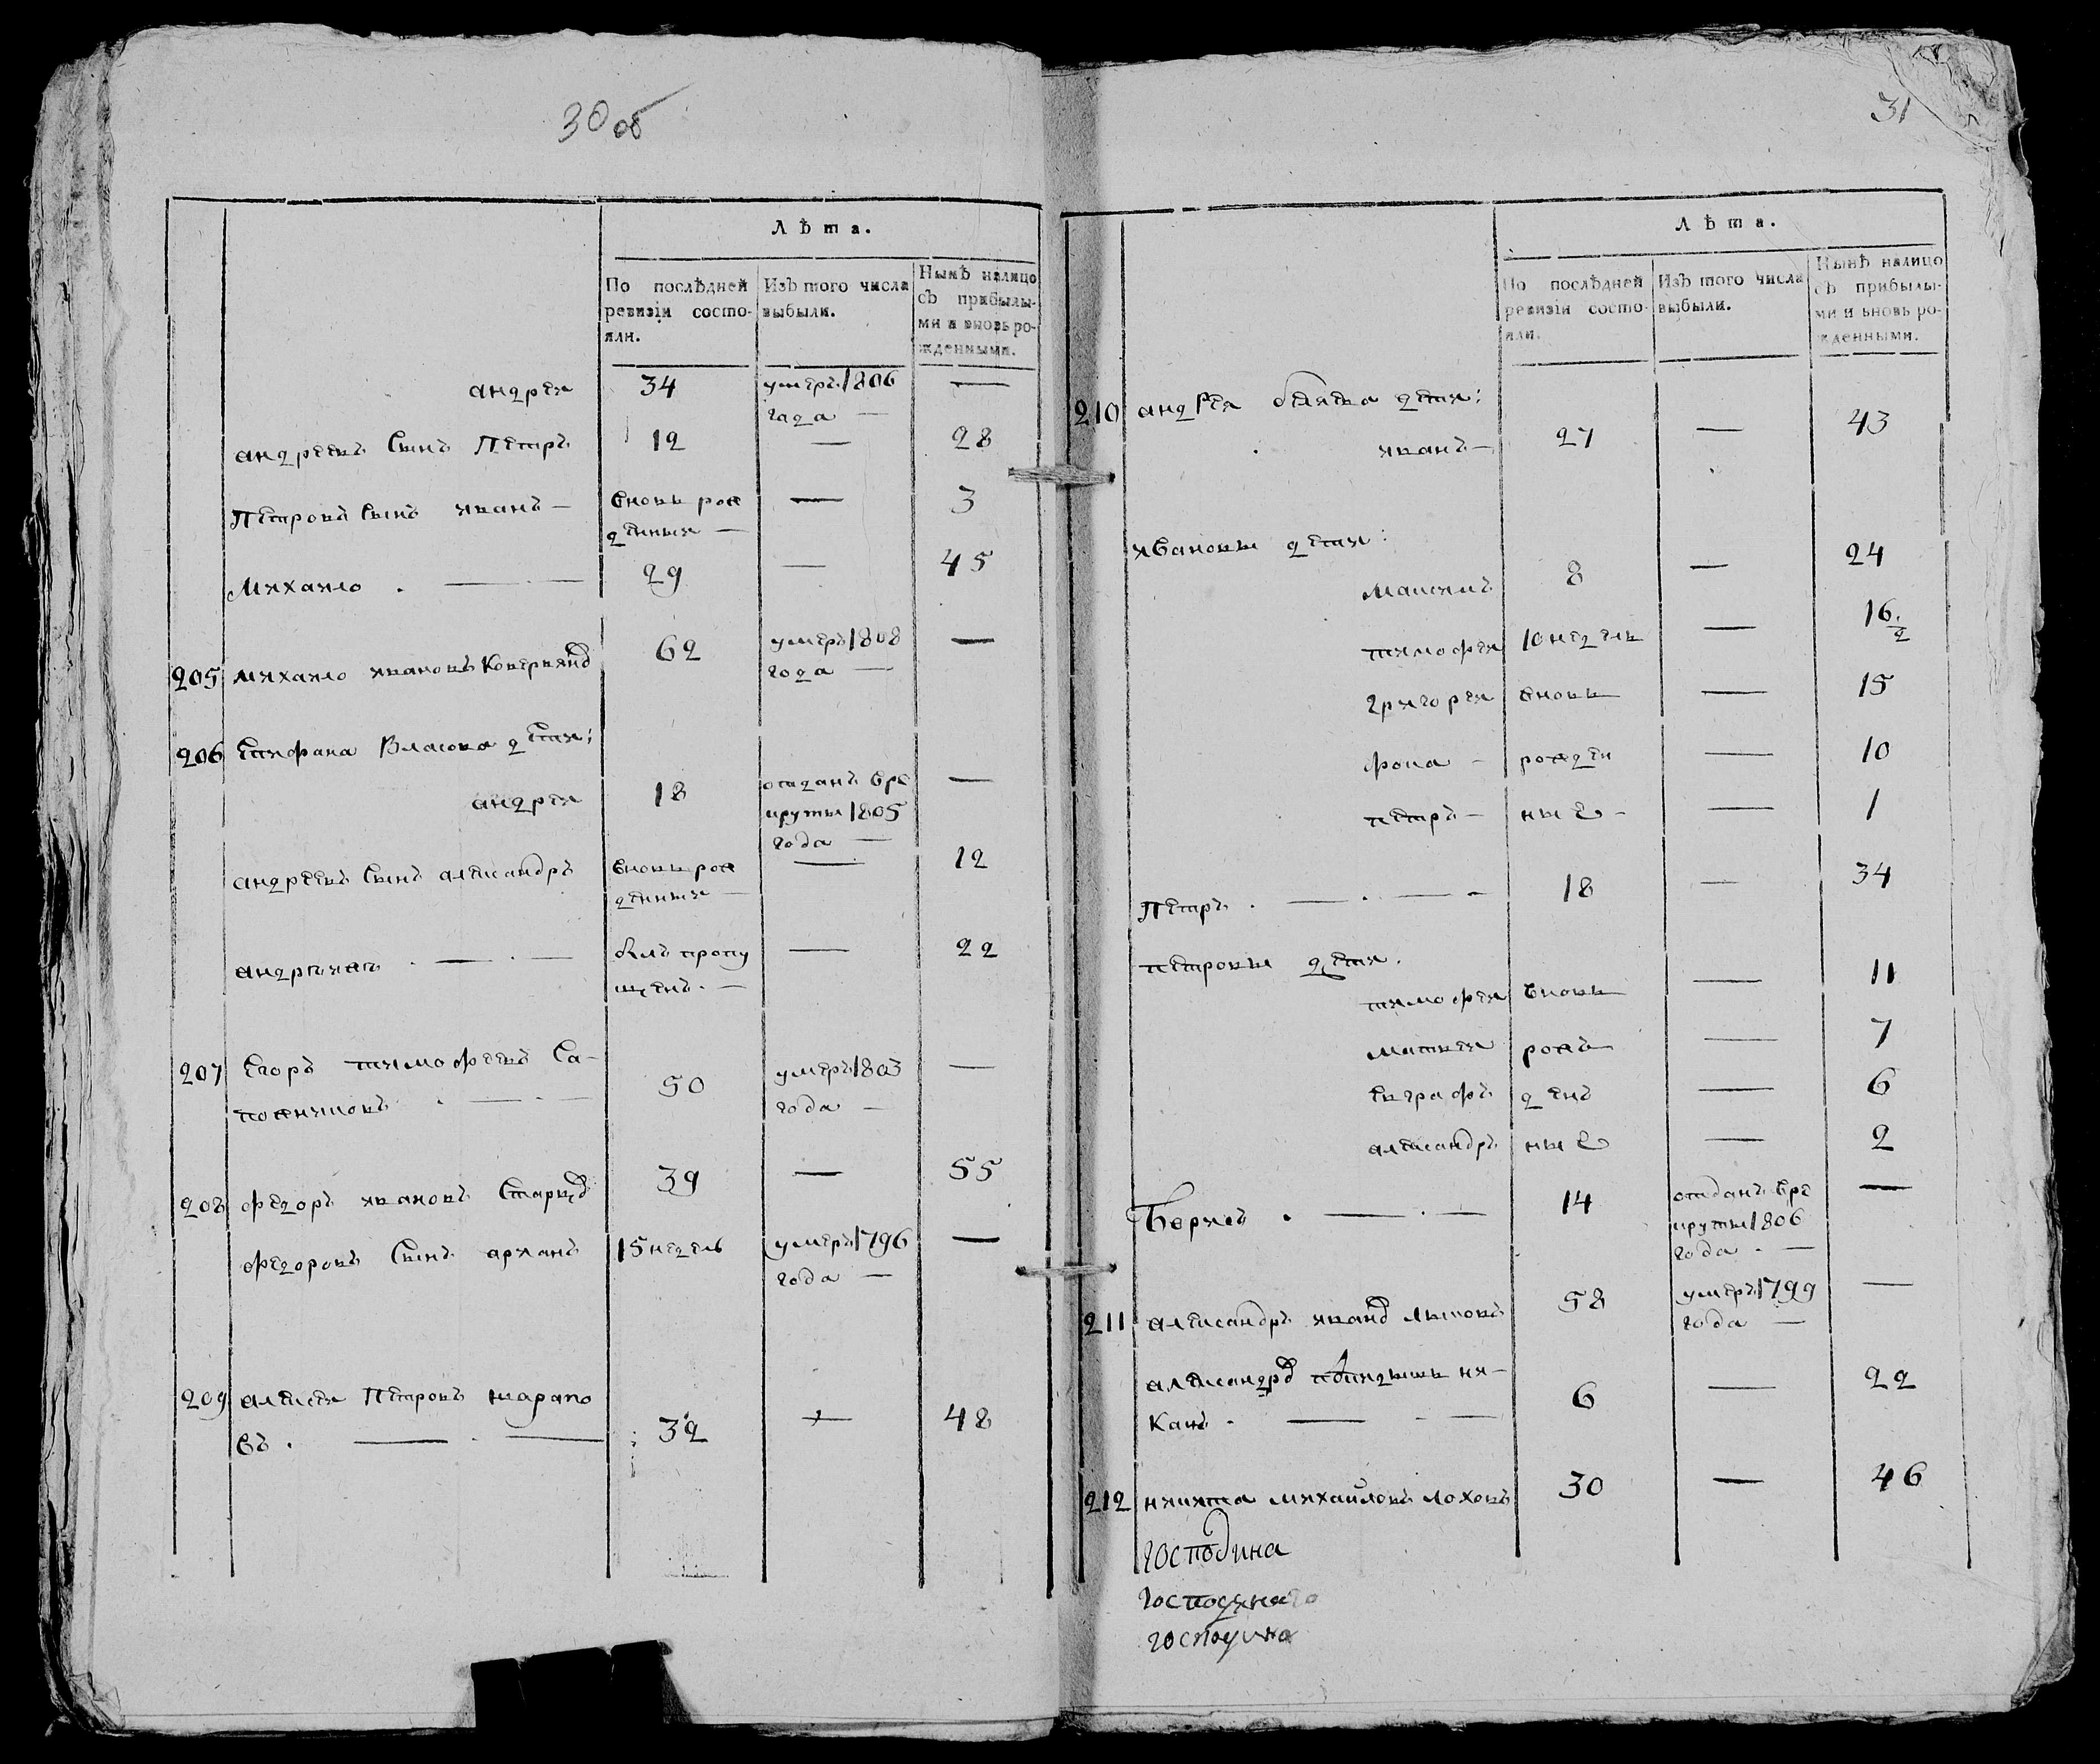 30 об
Лѣта.
По послѣдней ревизіи состояли.
Изъ того числа выбыли.
Нынѣ налицо съ прибылыми и вновь рожденными.
андреи 34 умеръ 1806 —
года —
андреевъ Сынъ Петръ 12 — 28
Петровъ Сынъ иванъ — вновь рож — 3
денныи —
михаило . — 29 — 45
205 михаило ивановъ 62 умеръ 1808 —
года —
206 Стифана Власова дети:
андреи 18 отданъ вре —
круты 1805
года —
андреевъ Сынъ александръ вновь рож — 12
денныи —
. — . — былъ пропу — 22
щенъ. —
207 Егоръ тимофеевъ Са-
пожниковъ . — . — 50 умеръ 1803 —
года —
208 федоръ ивановъ 39 — 55
федоровъ Сынъ 15 недель умеръ 1796 —
года —
209 алексеи Петровъ шарапо
въ . — . — 32 — 48
31
Лѣта.
По послѣдней ревизіи состояли.
Изъ того числа выбыли.
Нынѣ налицо съ прибылыми и вновь рожденными.
210 андрея беляева дети:
иванъ — 27 — 43
ивановы дети:
максимъ 8 — 24
тимофеи 10 недель — 16 1/2
григореи вновь — 15
фока — рожден — 10
петръ — ные — 1
Петръ . — . — 18 — 34
петровы дети.
тимофеи вновь — 11
матвеи рожъ — 7
евграфъ денъ — 6
александръ ные — 2
Борисъ . — . — 14 отданъ вре —
круты 1806
года . —
211 александръ иванов лыковъ 58 умеръ 1799 —
года —
ни-
канъ . — . — 6 — 22
212 никита михайловъ лоховъ 30 — 46
господина
господина
господина